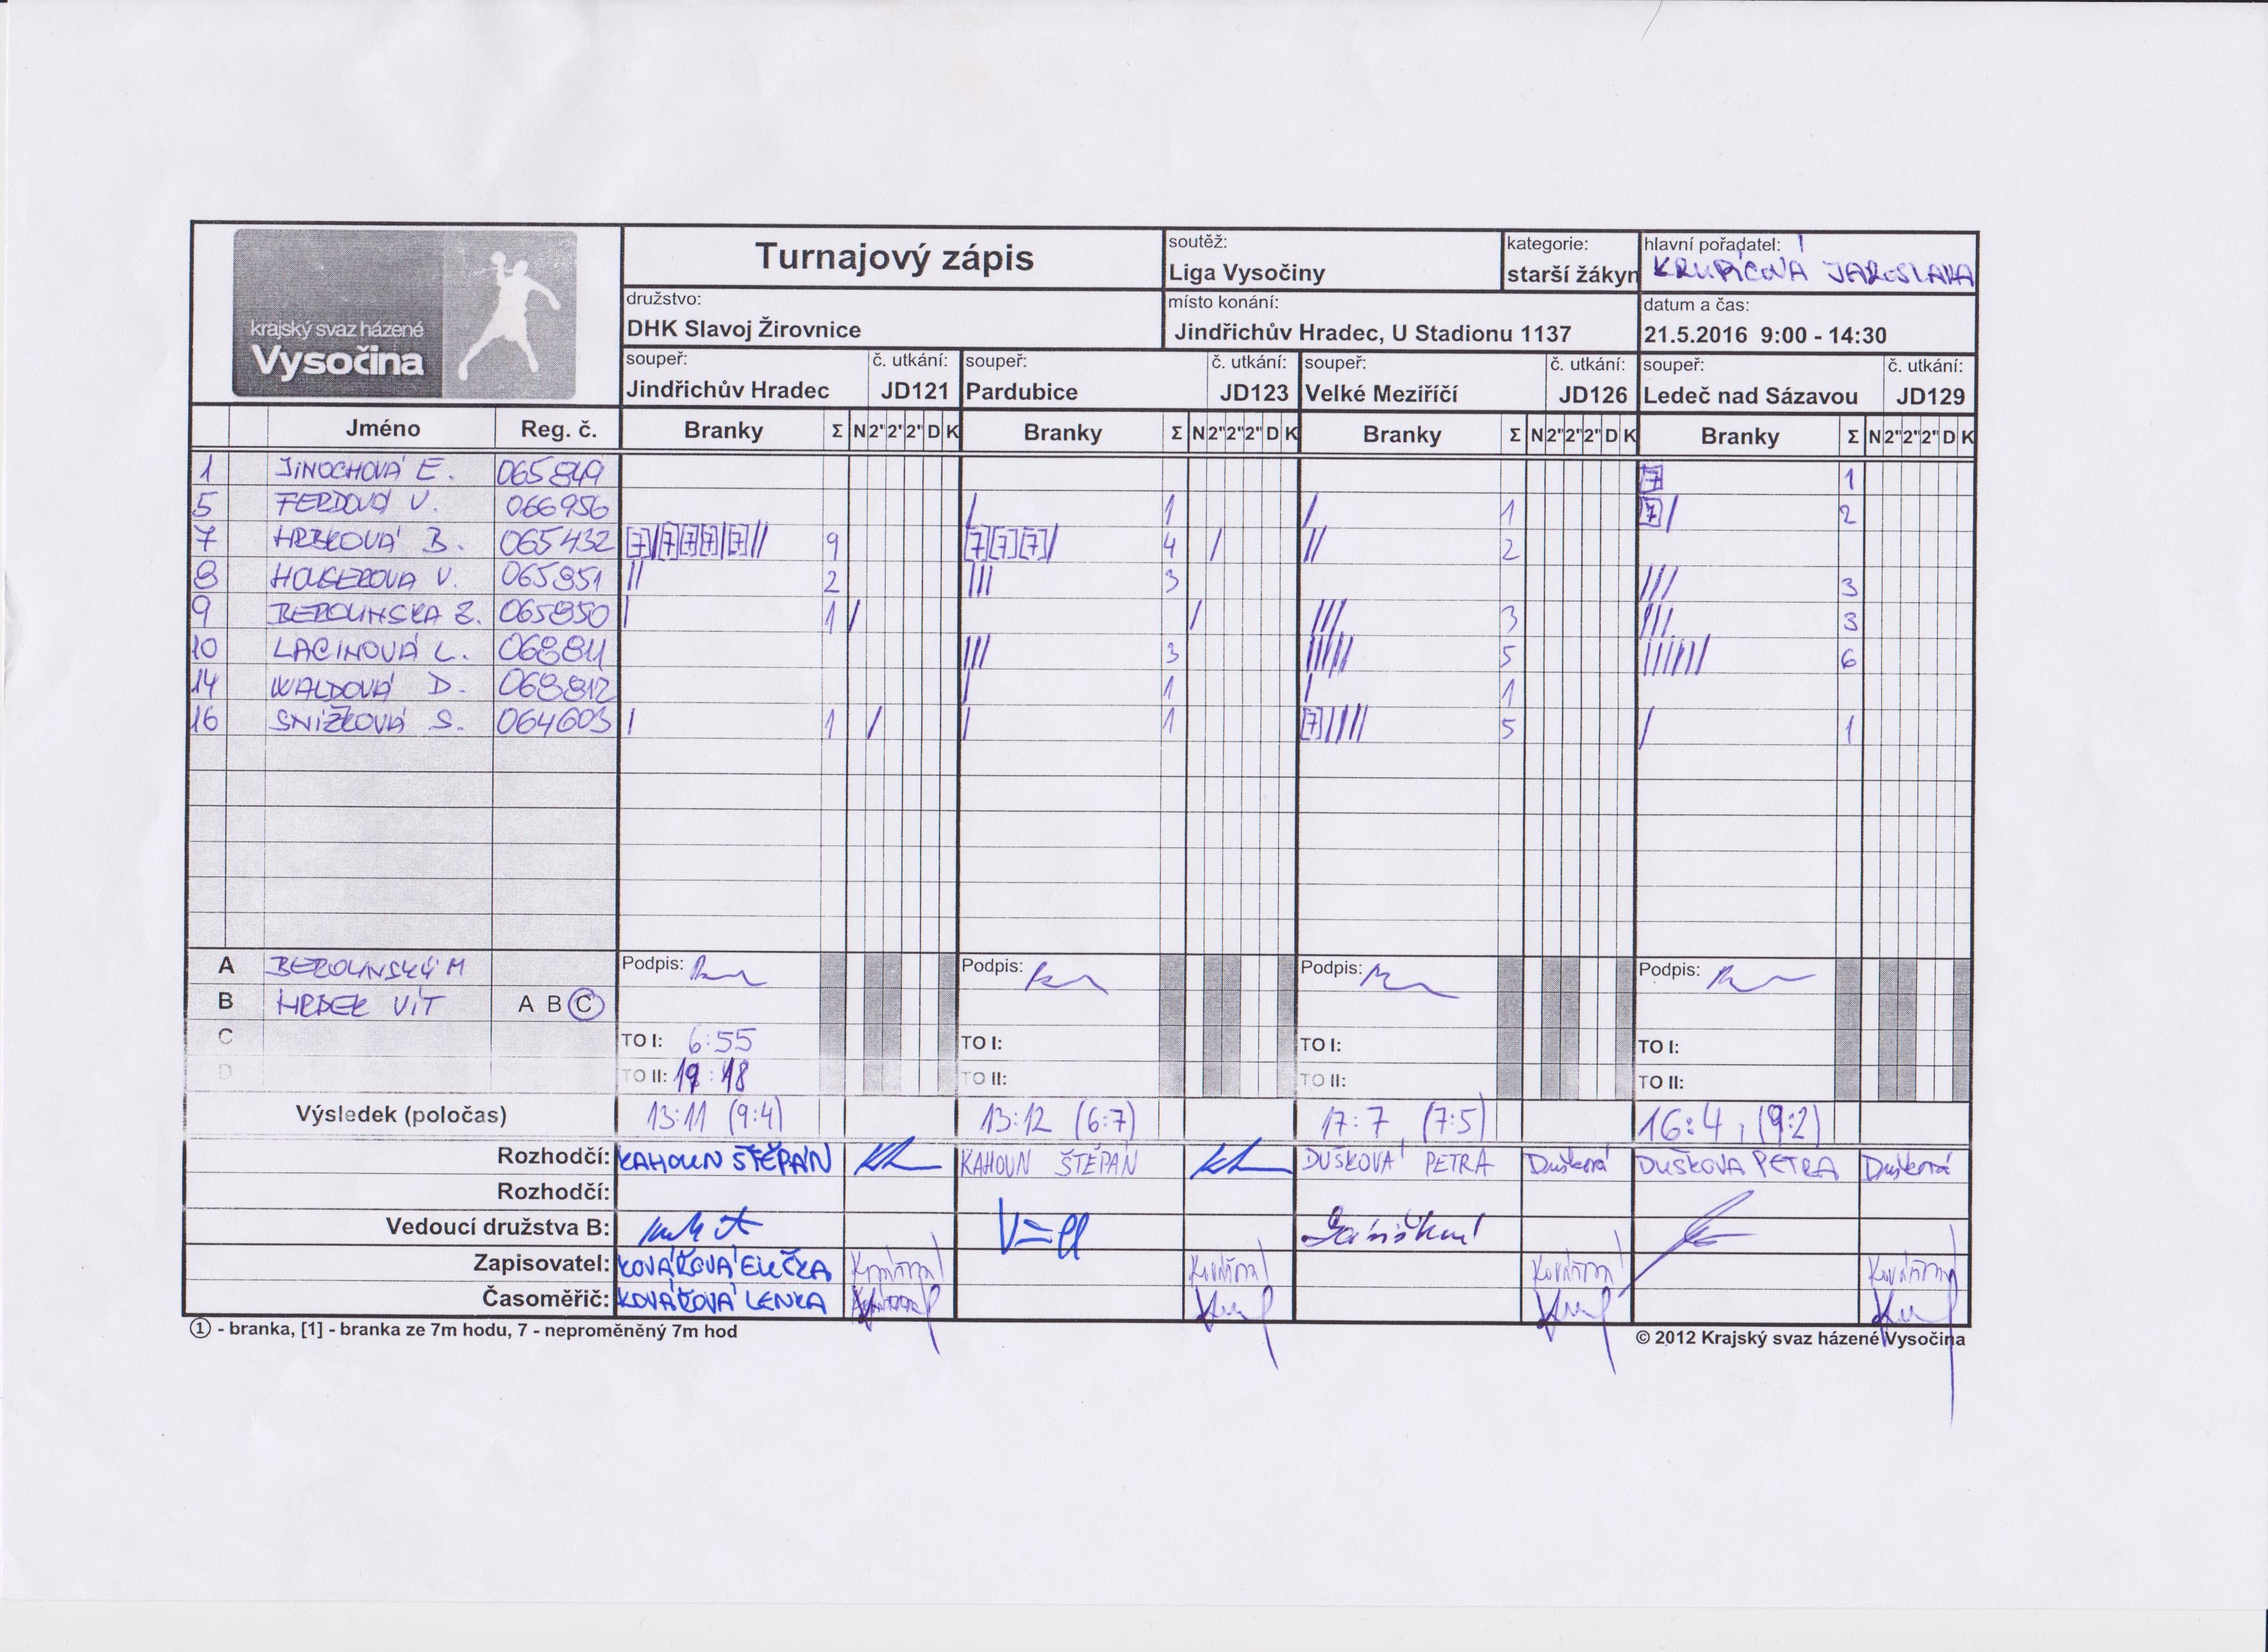 krajský svaz házené
Vysočina
Turnajový zápis
soutěž:
Liga Vysočiny
kategorie:
starší žákyn
hlavní pořadatel:
JAROSLAVA
družstvo:
DHK Slavoj Žirovnice
místo konání:
Jindřichův Hradec, U Stadionu 1137
datum a čas:
21.5.2016 9:00 - 14:30
soupeř: č. utkání: soupeř: č. utkání: soupeř: č. utkání: soupeř: č. utkání:
Jindřichův Hradec JD121 Pardubice JD123 Velké Meziříčí JD126 Ledeč nad Sázavou JD129
Jméno Reg. č. Branky Σ N 2" 2" 2" D K Branky Σ N 2" 2" 2" D K Branky Σ N 2" 2" 2" D K Branky Σ N 2" 2" 2" D K
1 JINOCHOVÁ E. 065849 [7] 1
5 FERDOVÁ V. 066956 / 1 / 1 [7]/ 2
7 HRBKOVÁ B. 065432 [7]/[7][7][7]/[7]// 9 [7][7][7]/ 4 / // 2
8 HOUSEROVA V. 065851 // 2 /// 3 /// 3
9 BEROUNSKA Z. 065850 / 1 / / /// 3 /// 3
10 LACINOVÁ L. 068811 /// 3 ///// 5 ////// 6
14 WALDOVÁ D. 068812 / 1 / 1
16 SNÍŽKOVÁ S. 064603 / 1 / / 1 [7]//// 5 / 1
A BEROUNSKÝ M Podpis: Podpis: Podpis: Podpis:
B VÍT A B C
C TO I: 6:55 TO I: TO I: TO I:
D TO II: 19:18 TO II: TO II: TO II:
Výsledek (poločas) 13:11 (9:4) 13:12 (6:7) 17:7 (7:5) 16:4, (9:2)
Rozhodčí: KAHOUN ŠTĚPÁN KAHOUN ŠTĚPÁN DUŠKOVÁ PETRA Dušková DUŠKOVA PETRA Dušková
Rozhodčí:
Vedoucí družstva B:
Zapisovatel: KOVÁŘOVÁ ELIČKA
Časoměřič: KOVÁŘOVÁ LENKA
① - branka, [1] - branka ze 7m hodu, 7 - neproměněný 7m hod
© 2012 Krajský svaz házené Vysočina